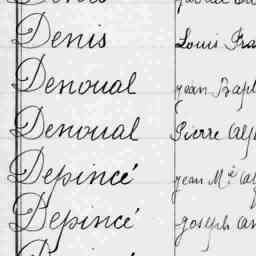 Denis Louis
Denoual Jean
Denoual Pierre
Depincé Jean M.
Depincé Joseph